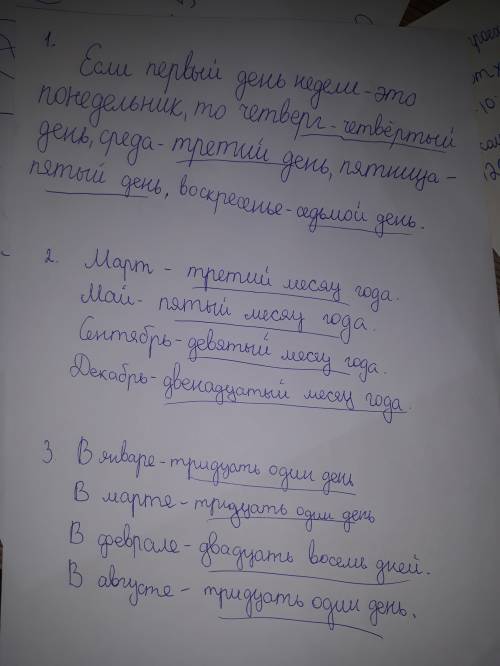 1.
Если первый день недели - это
понедельник, то четверг - четвёртый
день, среда - третий день, пятница -
пятый день, воскресенье - седьмой день.
2. Март - третий месяц года.
Май - пятый месяц года.
Сентябрь - девятый месяц года.
Декабрь - двенадцатый месяц года.
3. В январе - тридцать один день
В марте - тридцать один день
В феврале - двадцать восемь дней.
В августе - тридцать один день.